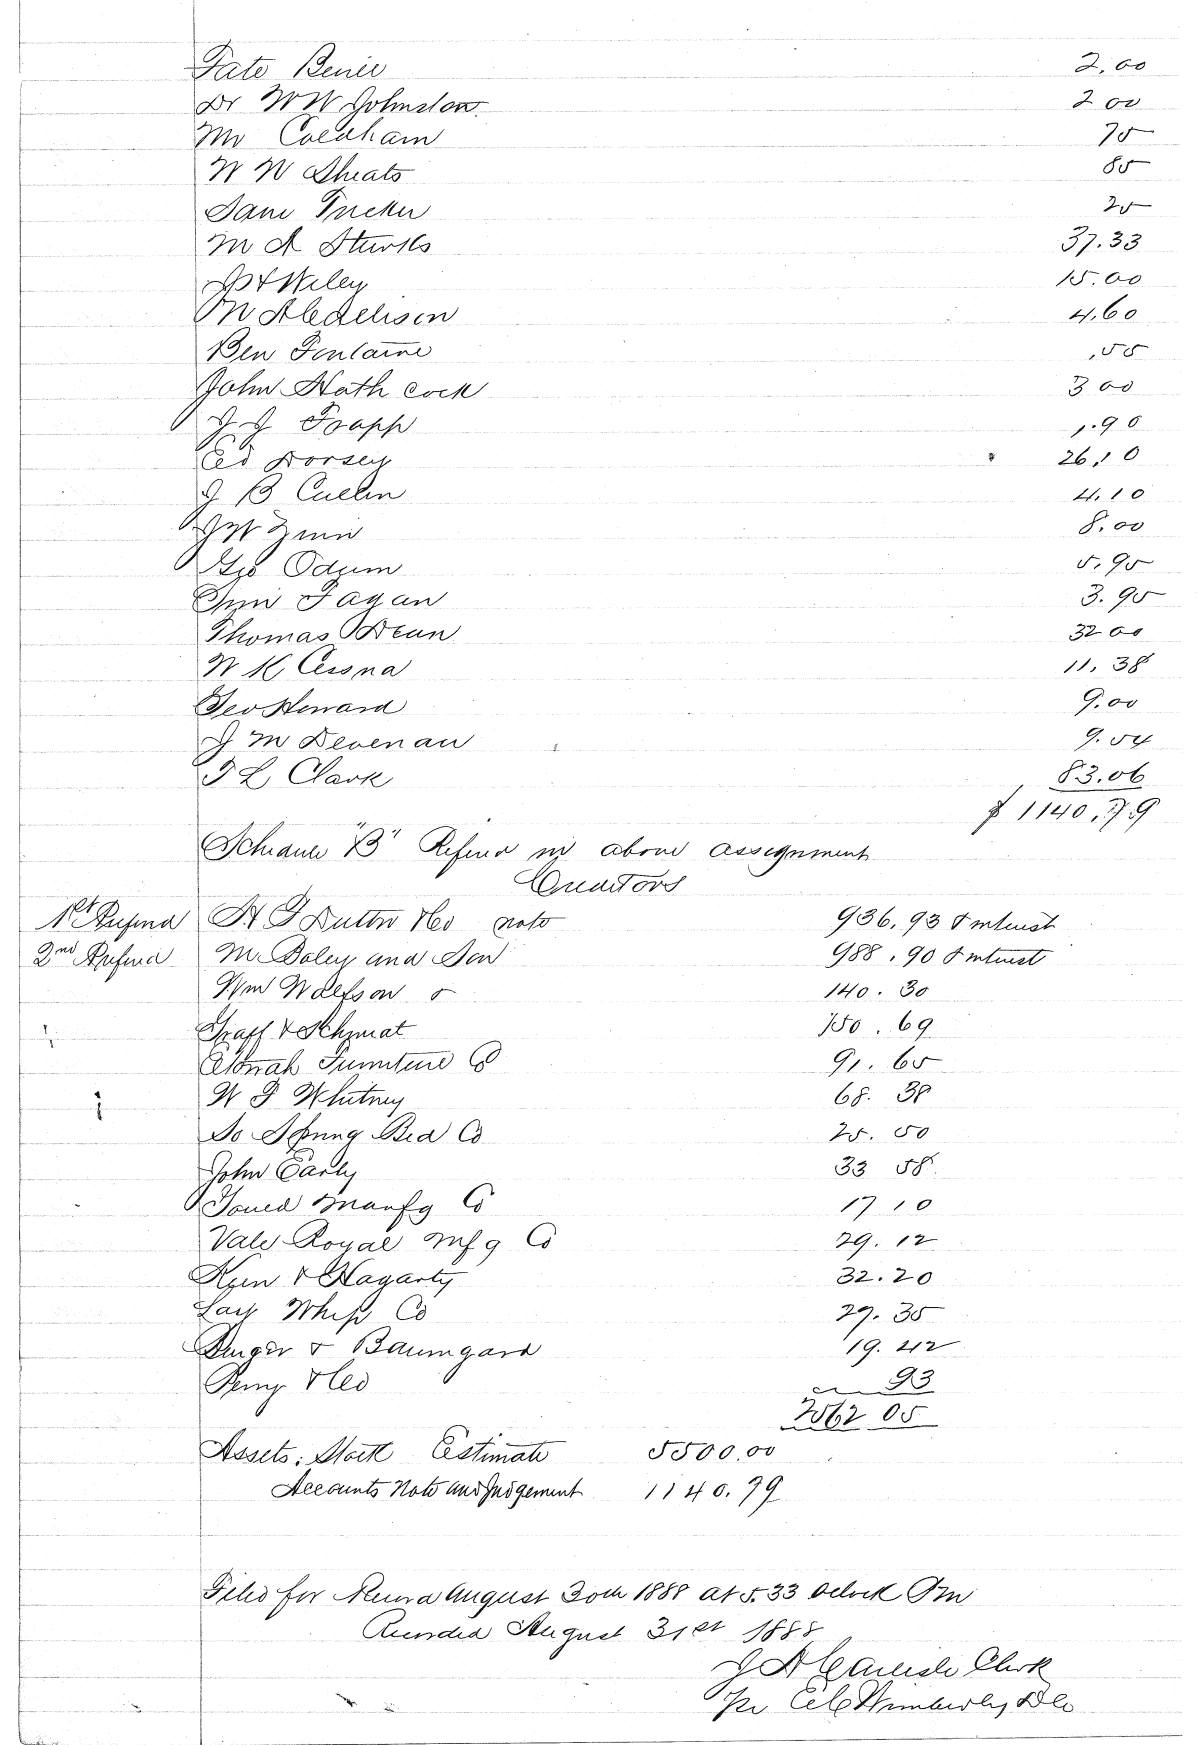 Tate Benie 2.00
Dr W W Johnston 2 00
Mr Coldham 75
W W Sheats 85
Jane Tucker 25
M A Sturks 37.33
Wiley 15.00
M 4.60
Ben Fontaine .55
John Hath cock 3 00
J J Trapp 1.90
Ed Dorsey 26.10
J B Cullen 4.10
J W Zinn 8.00
Geo Odum 5.95
Jim Fagan 3.95
Thomas Dean 32 00
W K Cessna 11.38
Geo Howard 9.00
J M Devenau 9.54
T L Clark 83.06
$ 1140.79
Schedule "B" Referred in above assignment
Creditors
1st Preferred H F Dutton & Co note 936.93 & Interest
2nd Preferred M Daley and Son 988.90 & Interest
Wm Wolfson 140.30
Graff & Schmidt 150.69
Furniture Co 91.65
W F Whitney 68.38
So Spring Bed Co 25.50
John Early 33 58
Manfg Co 17 10
Vale Royal Mfg Co 29.12
& Hagarty 32.20
Lay Whip Co 29.35
& Baumgard 19.42
Perry & Co 93
2562 05
Assets: Stock Estimate 5500.00
Accounts Note and Judgement 1140.79
Filed for Record August 30th 1888 at 5.33 Oclock Pm
Recorded August 31st 1888
J A Carlisle Clerk
Per Wimberly D C